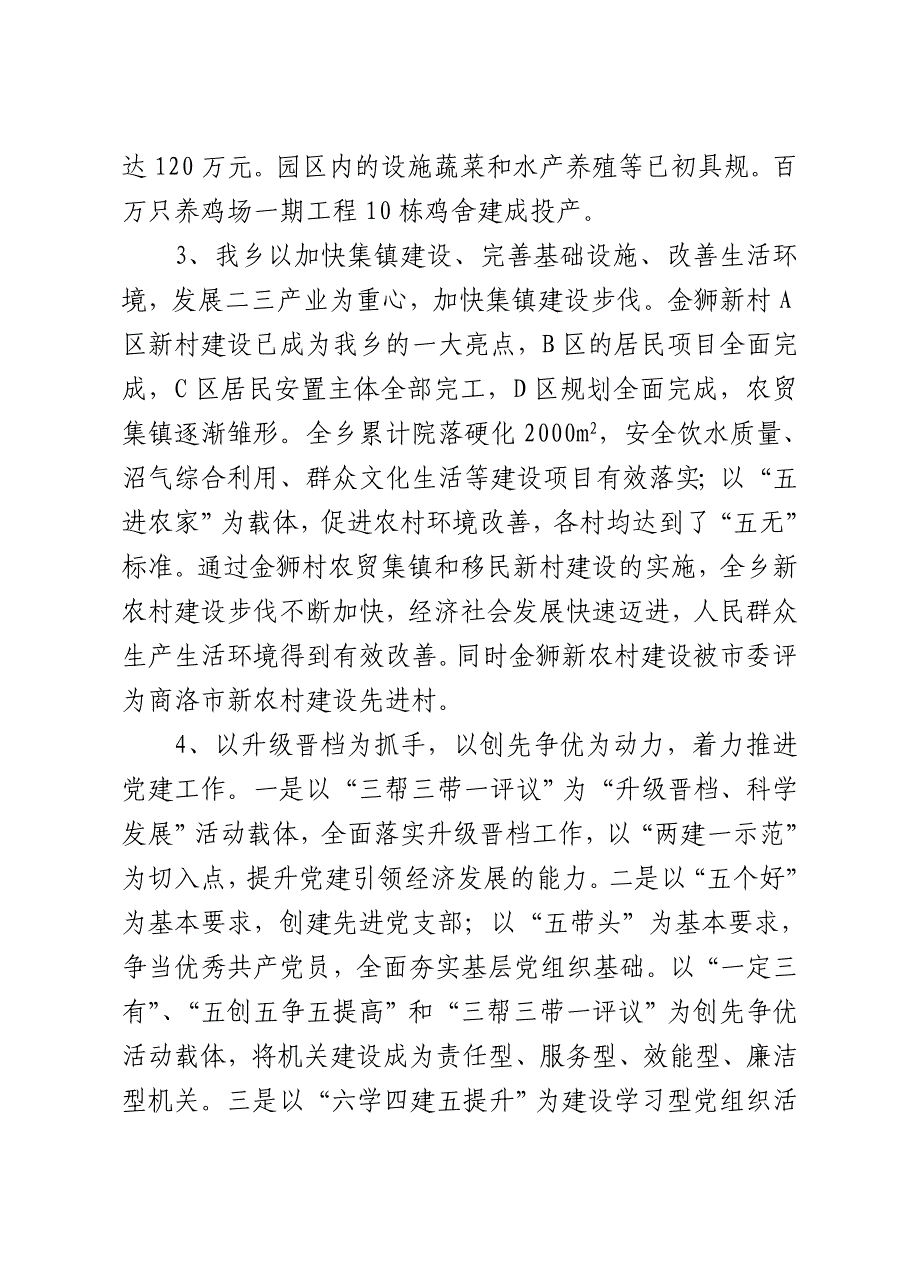 达 120 万元。园区内的设施蔬菜和水产养殖等已初具规。百
万只养鸡场一期工程 10 栋鸡舍建成投产。
3、我乡以加快集镇建设、完善基础设施、改善生活环
境，发展二三产业为重心，加快集镇建设步伐。金狮新村 A
区新村建设已成为我乡的一大亮点，B 区的居民项目全面完
成，C 区居民安置主体全部完工，D 区规划全面完成，农贸
集镇逐渐雏形。全乡累计院落硬化 2000m²，安全饮水质量、
沼气综合利用、群众文化生活等建设项目有效落实；以“五
进农家”为载体，促进农村环境改善，各村均达到了“五无”
标准。通过金狮村农贸集镇和移民新村建设的实施，全乡新
农村建设步伐不断加快，经济社会发展快速迈进，人民群众
生产生活环境得到有效改善。同时金狮新农村建设被市委评
为商洛市新农村建设先进村。
4、以升级晋档为抓手，以创先争优为动力，着力推进
党建工作。一是以“三帮三带一评议”为“升级晋档、科学
发展”活动载体，全面落实升级晋档工作，以“两建一示范”
为切入点，提升党建引领经济发展的能力。二是以“五个好”
为基本要求，创建先进党支部；以“五带头”为基本要求，
争当优秀共产党员，全面夯实基层党组织基础。以“一定三
有”、“五创五争五提高”和“三帮三带一评议”为创先争优
活动载体，将机关建设成为责任型、服务型、效能型、廉洁
型机关。三是以“六学四建五提升”为建设学习型党组织活